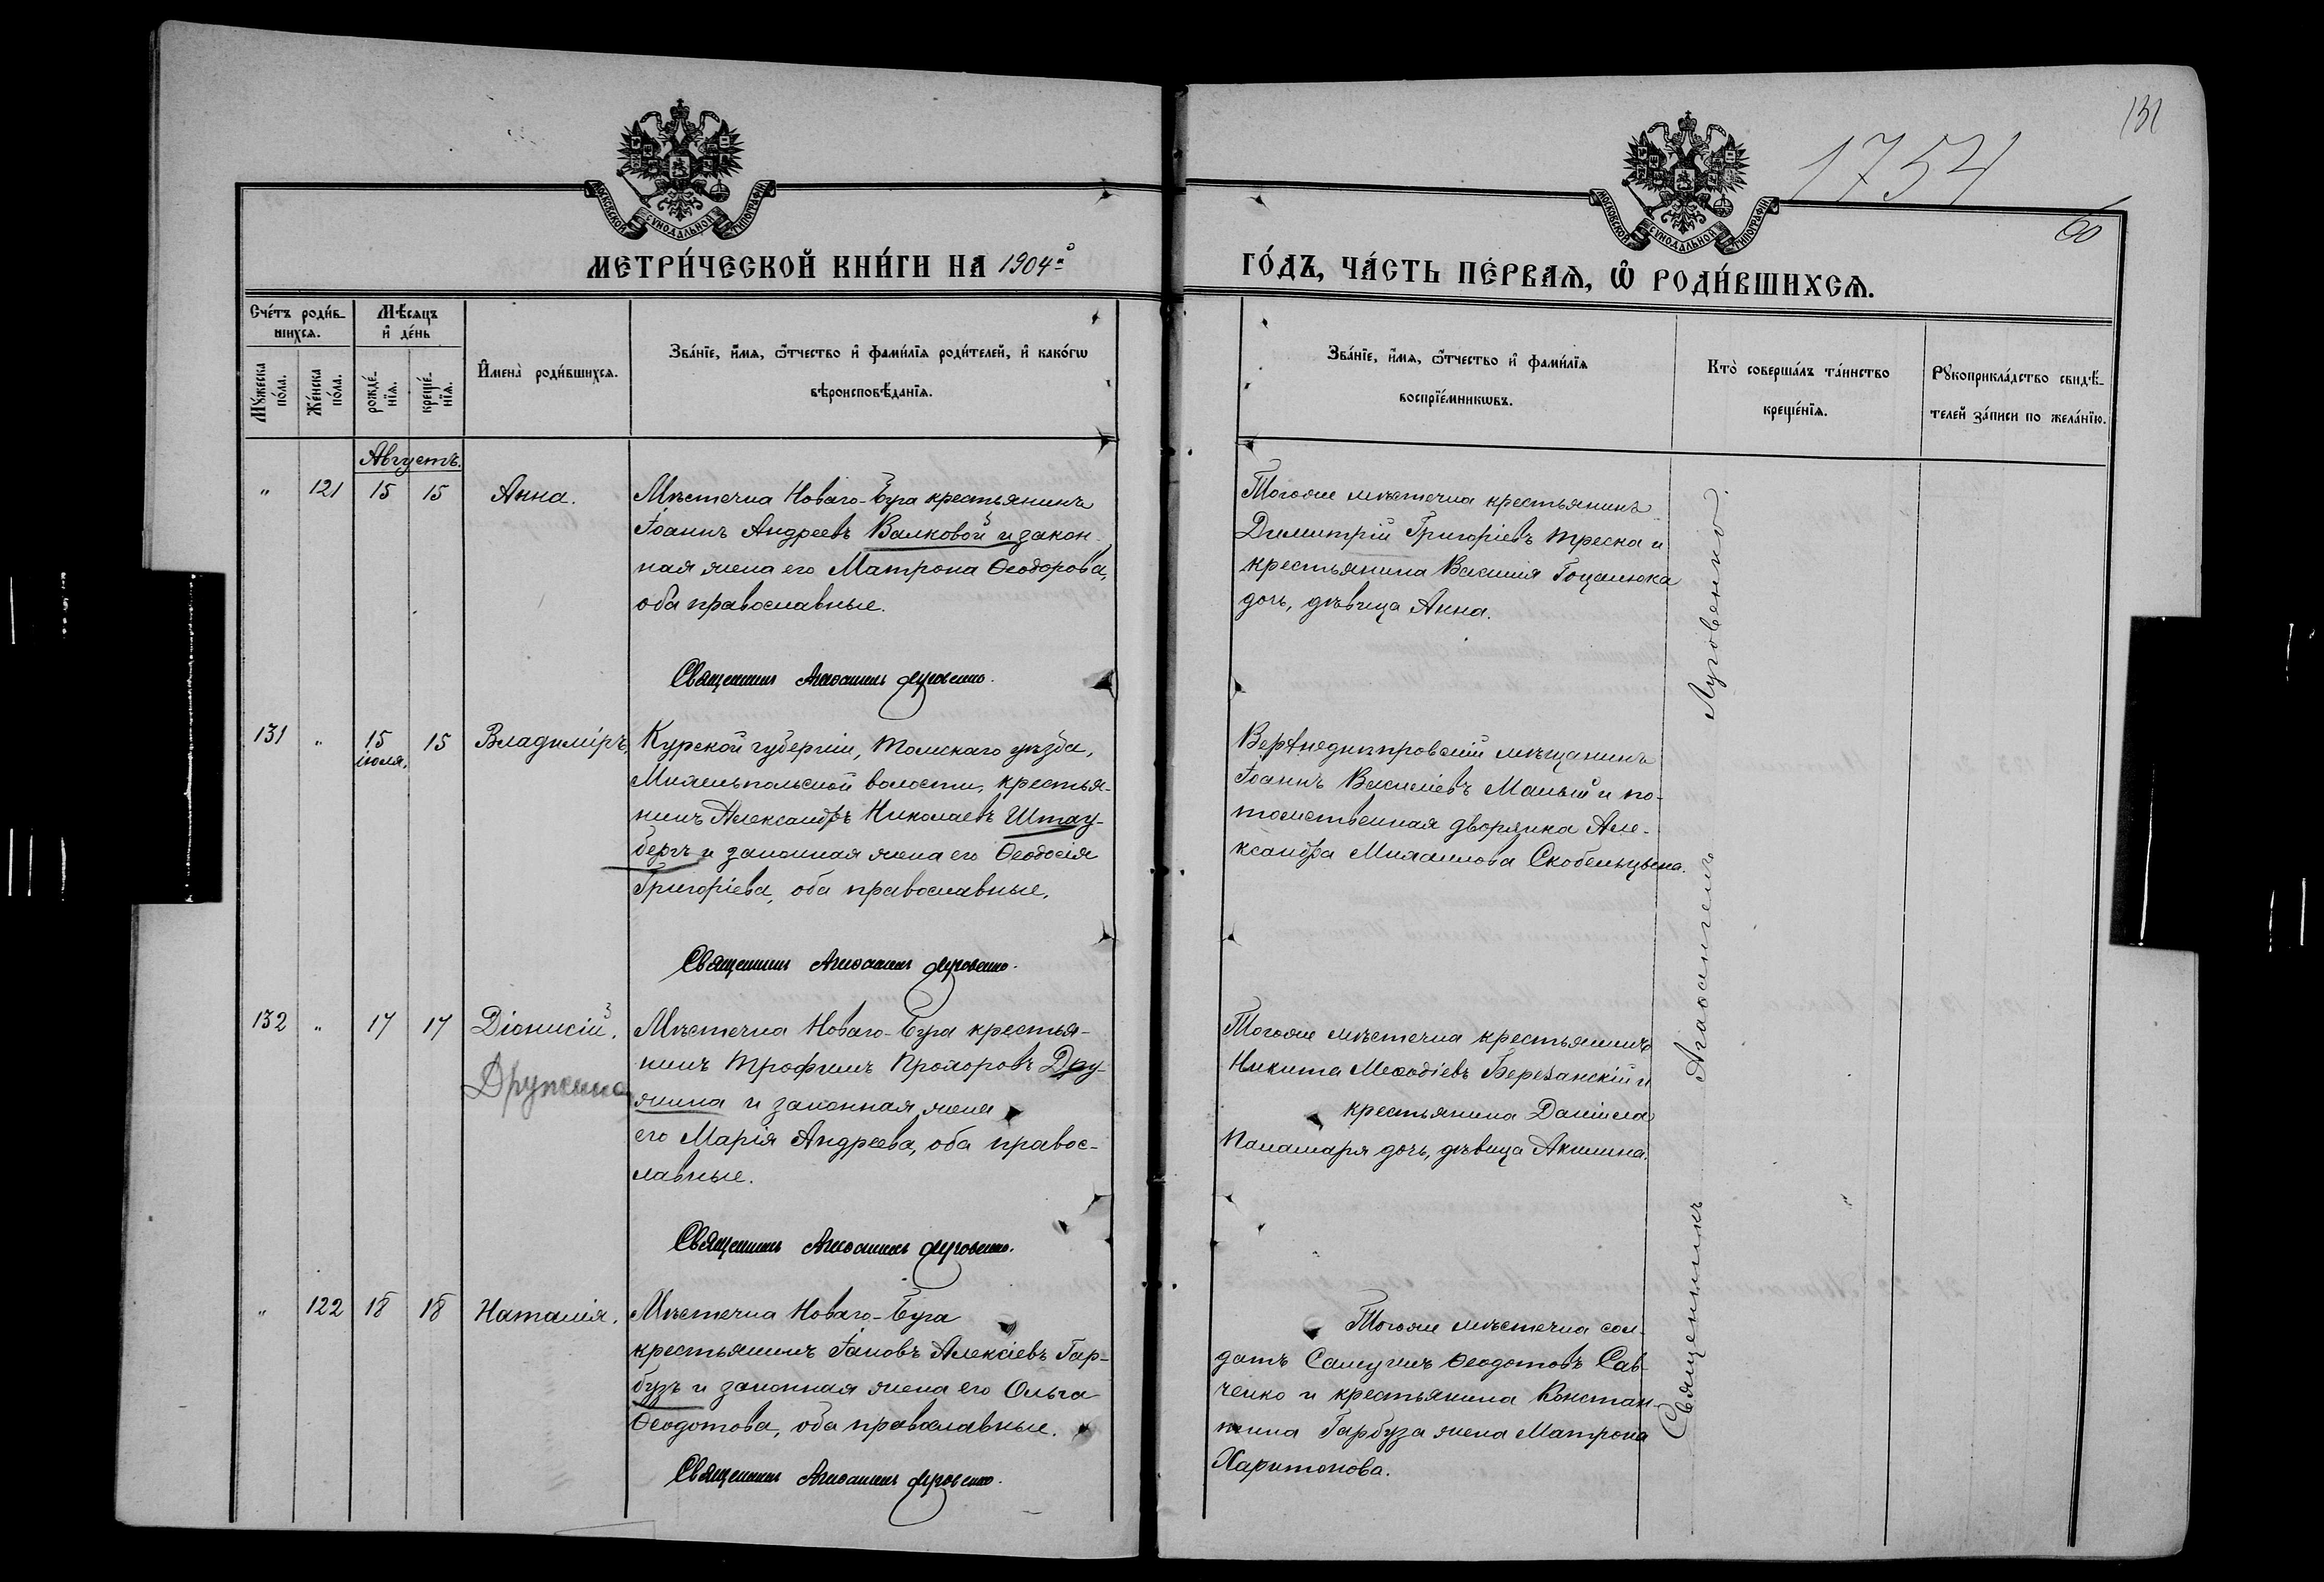 131
1754
60
МОСКОВСКОЙ СѴНОДАЛЬНОЙ ТИПОГРАФІИ
МОСКОВСКОЙ СѴНОДАЛЬНОЙ ТИПОГРАФІИ
МЕТРИ́ЧЕСКОЙ КНИ́ГИ НА 1904-й
ГО́ДЪ, ЧА́СТЬ ПЕ́РВАѦ, Ѡ҆ РОДИ́ВШИХСѦ.
Сче́тъ роди́в-
шихсѧ.
Мꙋ́жеска
по́ла.
Же́нска
по́ла.
Мѣ́сѧцъ
и҆ де́нь
рожде́-
нїѧ.
креще́-
нїѧ.
И҆мена̀ роди́вшихсѧ.
Зва́нїе, и҆́мѧ, ѻ҆́тчество и҆ фами́лїѧ роди́телей, и҆ како́гѡ
вѣроисповѣ́данїѧ.
Зва́нїе, и҆́мѧ, ѻ҆́тчество и҆ фами́лїѧ
воспрїе́мникѡвъ.
Кто̀ соверша́лъ та́инство
креще́нїѧ.
Рꙋкоприкла́дство свидѣ́-
телей за́писи по жела́нїю.
Августъ.
" 121 15 15 Анна.
Мѣстечка Новаго-Буга крестьянинъ
Іоаннъ Андреевъ Валковой и закон-
ная жена его Матрона Ѳеодорова,
оба православные.
Священникъ Агаѳангелъ Луговенко.
Тогоже мѣстечка крестьянинъ
Димитрій Григоріевъ Треска и
крестьянина Василія Гоцалюка
дочь, дѣвица Анна.
131 " 15 іюля. 15 Владиміръ,
Курской губерніи, уѣзда,
волости, крестья-
нинъ Александръ Николаевъ Штау-
бергъ и законная жена его Ѳеодосія
Григоріева, оба православные.
Священникъ Агаѳангелъ Луговенко.
Верхнеднѣпровскій мѣщанинъ
Іоаннъ Василіевъ Малый и по-
томственная дворянка Але-
ксандра Михаилова Скобельцына.
132 " 17 17 Діонисій.
Дружина
Мѣстечка Новаго-Буга крестья-
нинъ Трофимъ Прохоровъ Дру-
жина и законная жена
его Марія Андреева, оба правос-
лавные.
Священникъ Агаѳангелъ Луговенко.
Тогоже мѣстечка крестьянинъ
Никита Меѳодіевъ Березанскій и
крестьянина Даніила
Паламаря дочь, дѣвица Акилина.
" 122 18 18 Наталія.
Мѣстечка Новаго-Буга
крестьянинъ Іаковъ Алексіевъ Гар-
бузъ и законная жена его Ольга
Ѳеодотова, оба православные.
Священникъ Агаѳангелъ Луговенко.
Тогоже мѣстечка сол-
датъ Самуилъ Ѳеодотовъ Сав-
ченко и крестьянина Констан-
тина Гарбуза жена Матрона
Харитонова.
Священникъ Агаѳангелъ Луговенко.